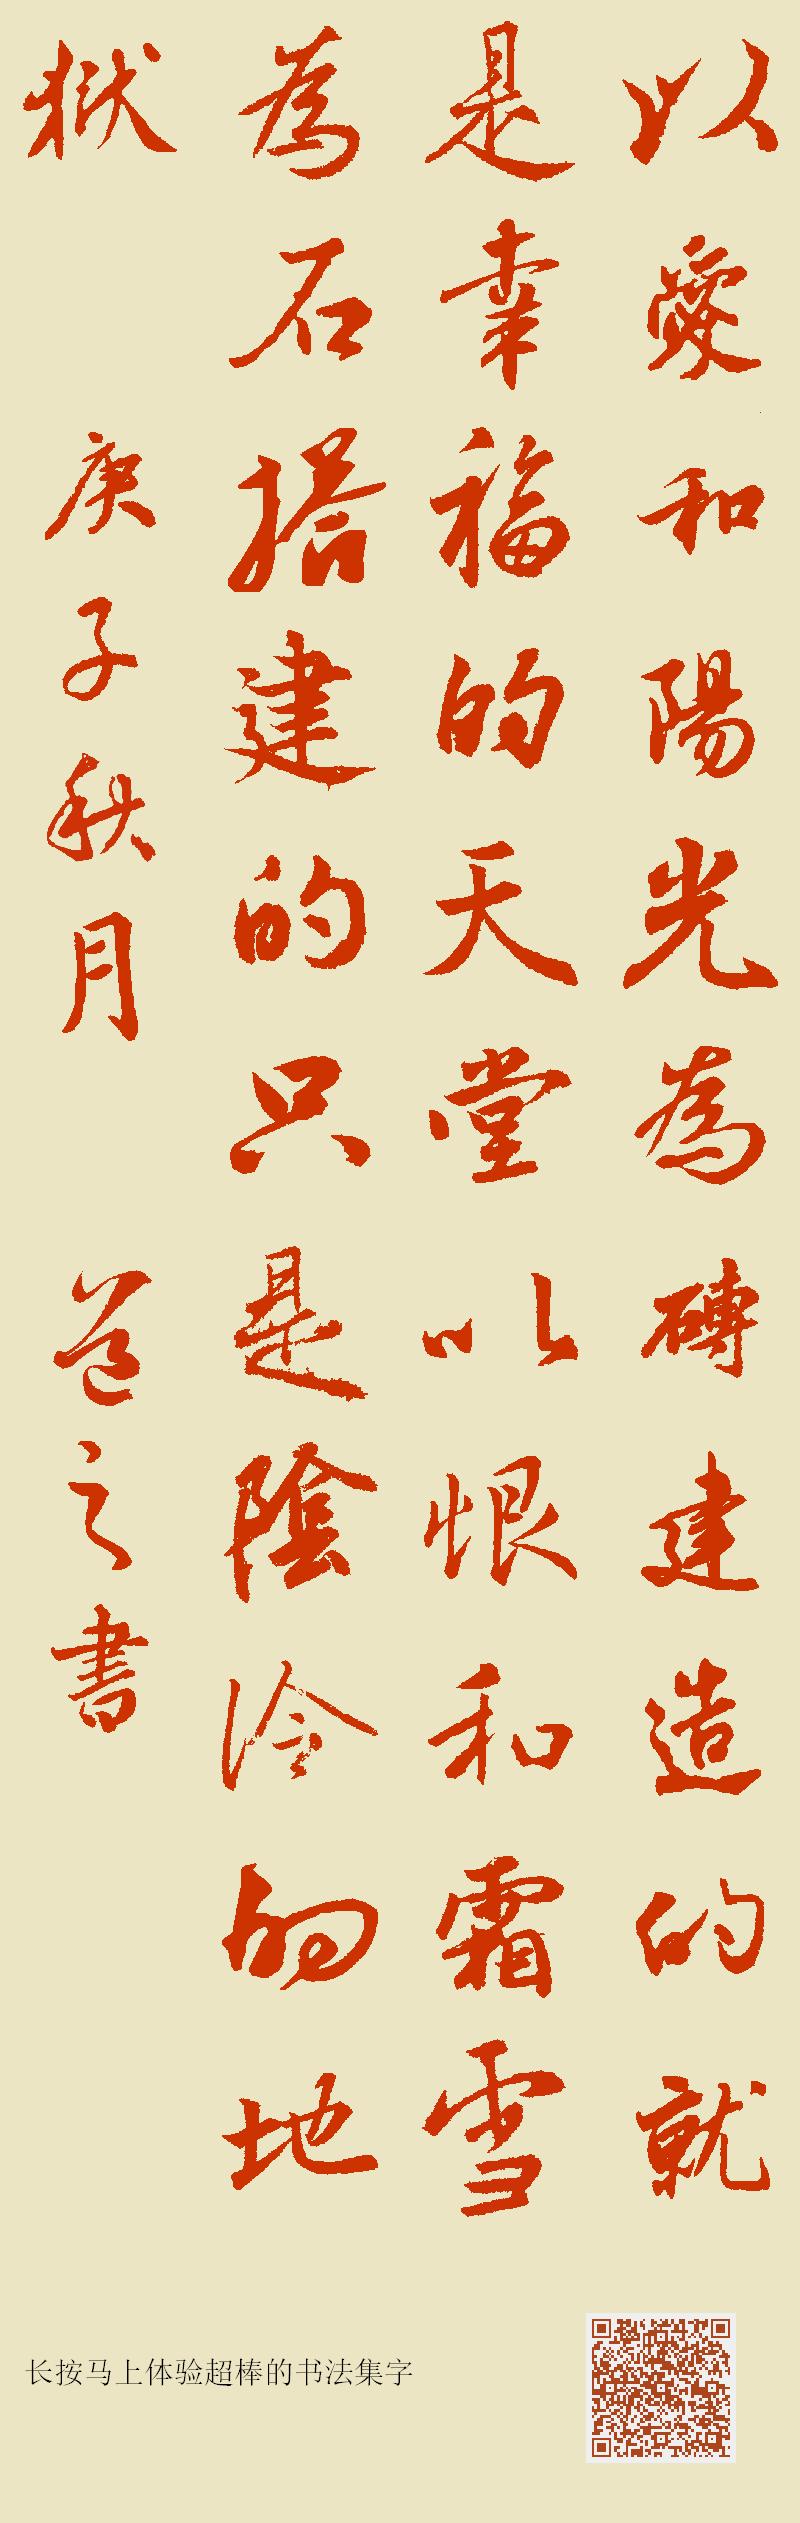 以愛和陽光為磚建造的就
是幸福的天堂以恨和霜雪
為石搭建的只是陰冷的地
獄
庚子秋月
道之書
长按马上体验超棒的书法集字